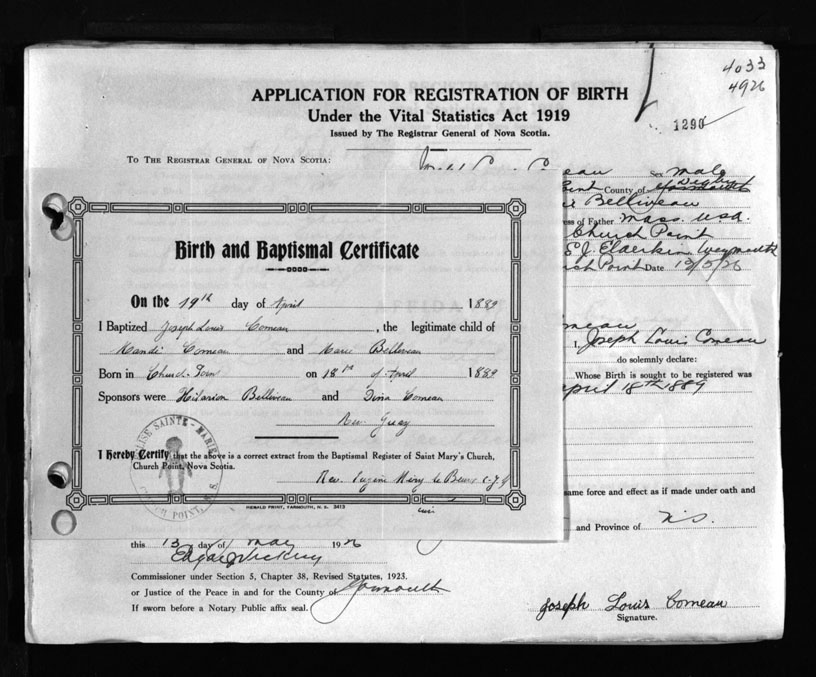 4033
4926
APPLICATION FOR REGISTRATION OF BIRTH
Under the Vital Statistics Act 1919
Issued by The Registrar General of Nova Scotia.
1290
TO THE REGISTRAR GENERAL OF NOVA SCOTIA:
eau Sex male
Point County of Yarmouth Digby
Belliveau
ess of Father Mass. USA.
Church Point
E. J. Weymouth
rch Point Date 13/5/26
Birth and Baptismal Certificate
On the 19th day of April 1889
I Baptized Joseph Louis Comeau, the legitimate child of
Mandé Comeau and Marie Belliveau
Born in Church Point on 18th of April 1889
Sponsors were Hilarion Belliveau and Comeau
Rev. Gay
I Hereby Certify that the above is a correct extract from the Baptismal Register of Saint Mary's Church,
Church Point, Nova Scotia.
Rev. Eugène
ÉGLISE SAINTE-MARIE
CHURCH POINT, N. S.
HERALD PRINT, YARMOUTH, N. S. 3413
meau
I, Joseph Louis Comeau
do solemnly declare:
Whose Birth is sought to be registered was
april 18th 1889
same force and effect as if made under oath and
and Province of N.S.
this 13 day of May 1926
Edgar
Commissioner under Section 5, Chapter 38, Revised Statutes, 1923.
or Justice of the Peace in and for the County of Yarmouth
If sworn before a Notary Public affix seal.
Joseph Louis Comeau
Signature.